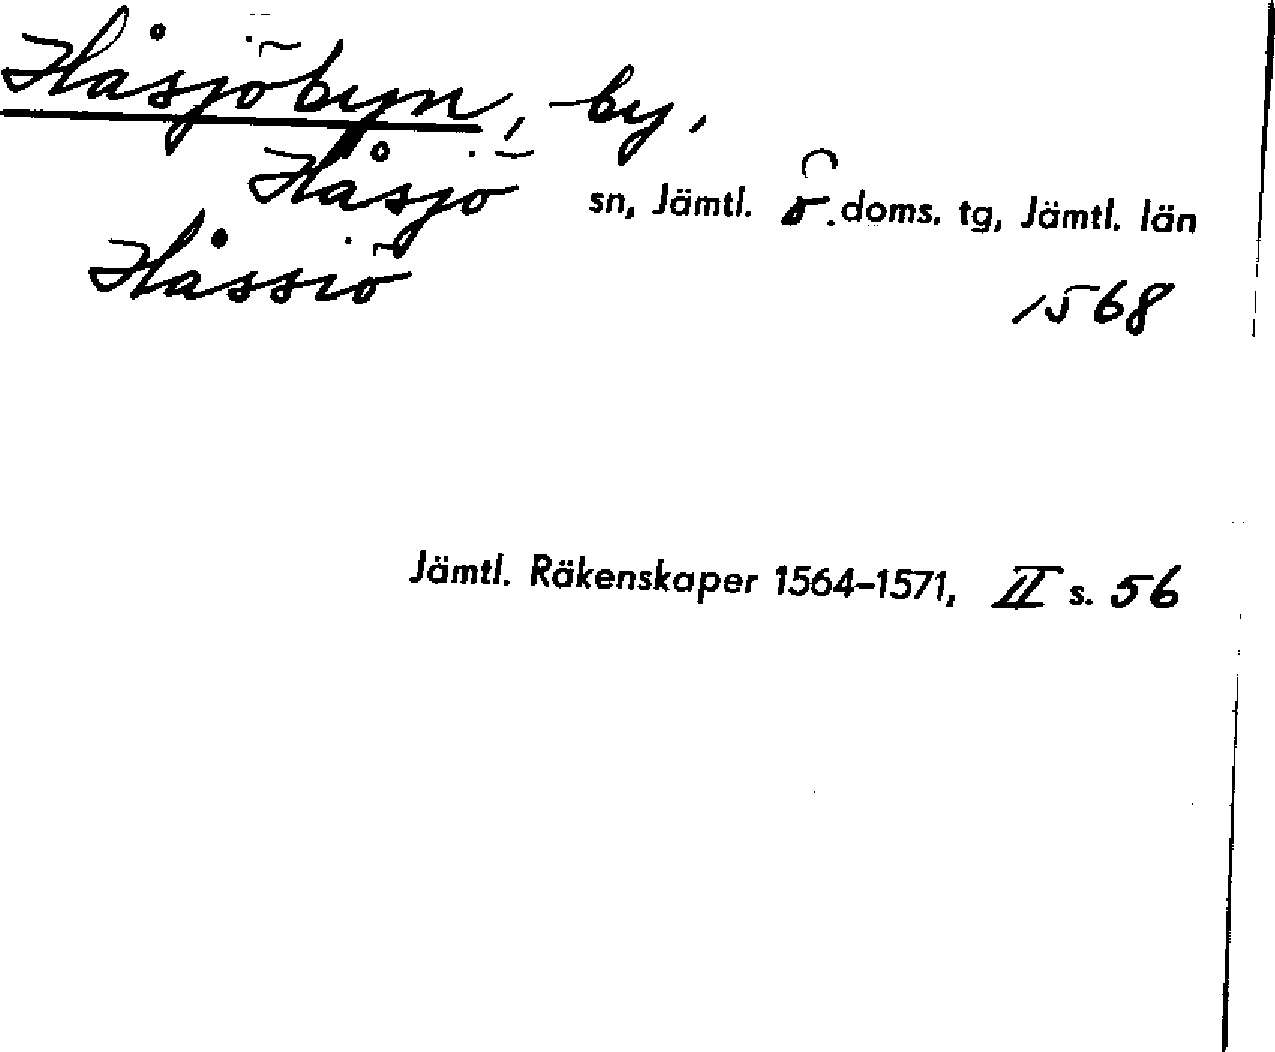 Håsjöbyn, by,
Håsjö sn, Jämtl. ö. doms. tg, Jämtl. län
Håssiö
1568
Jämtl. Räkenskaper 1564-1571, II s. 56